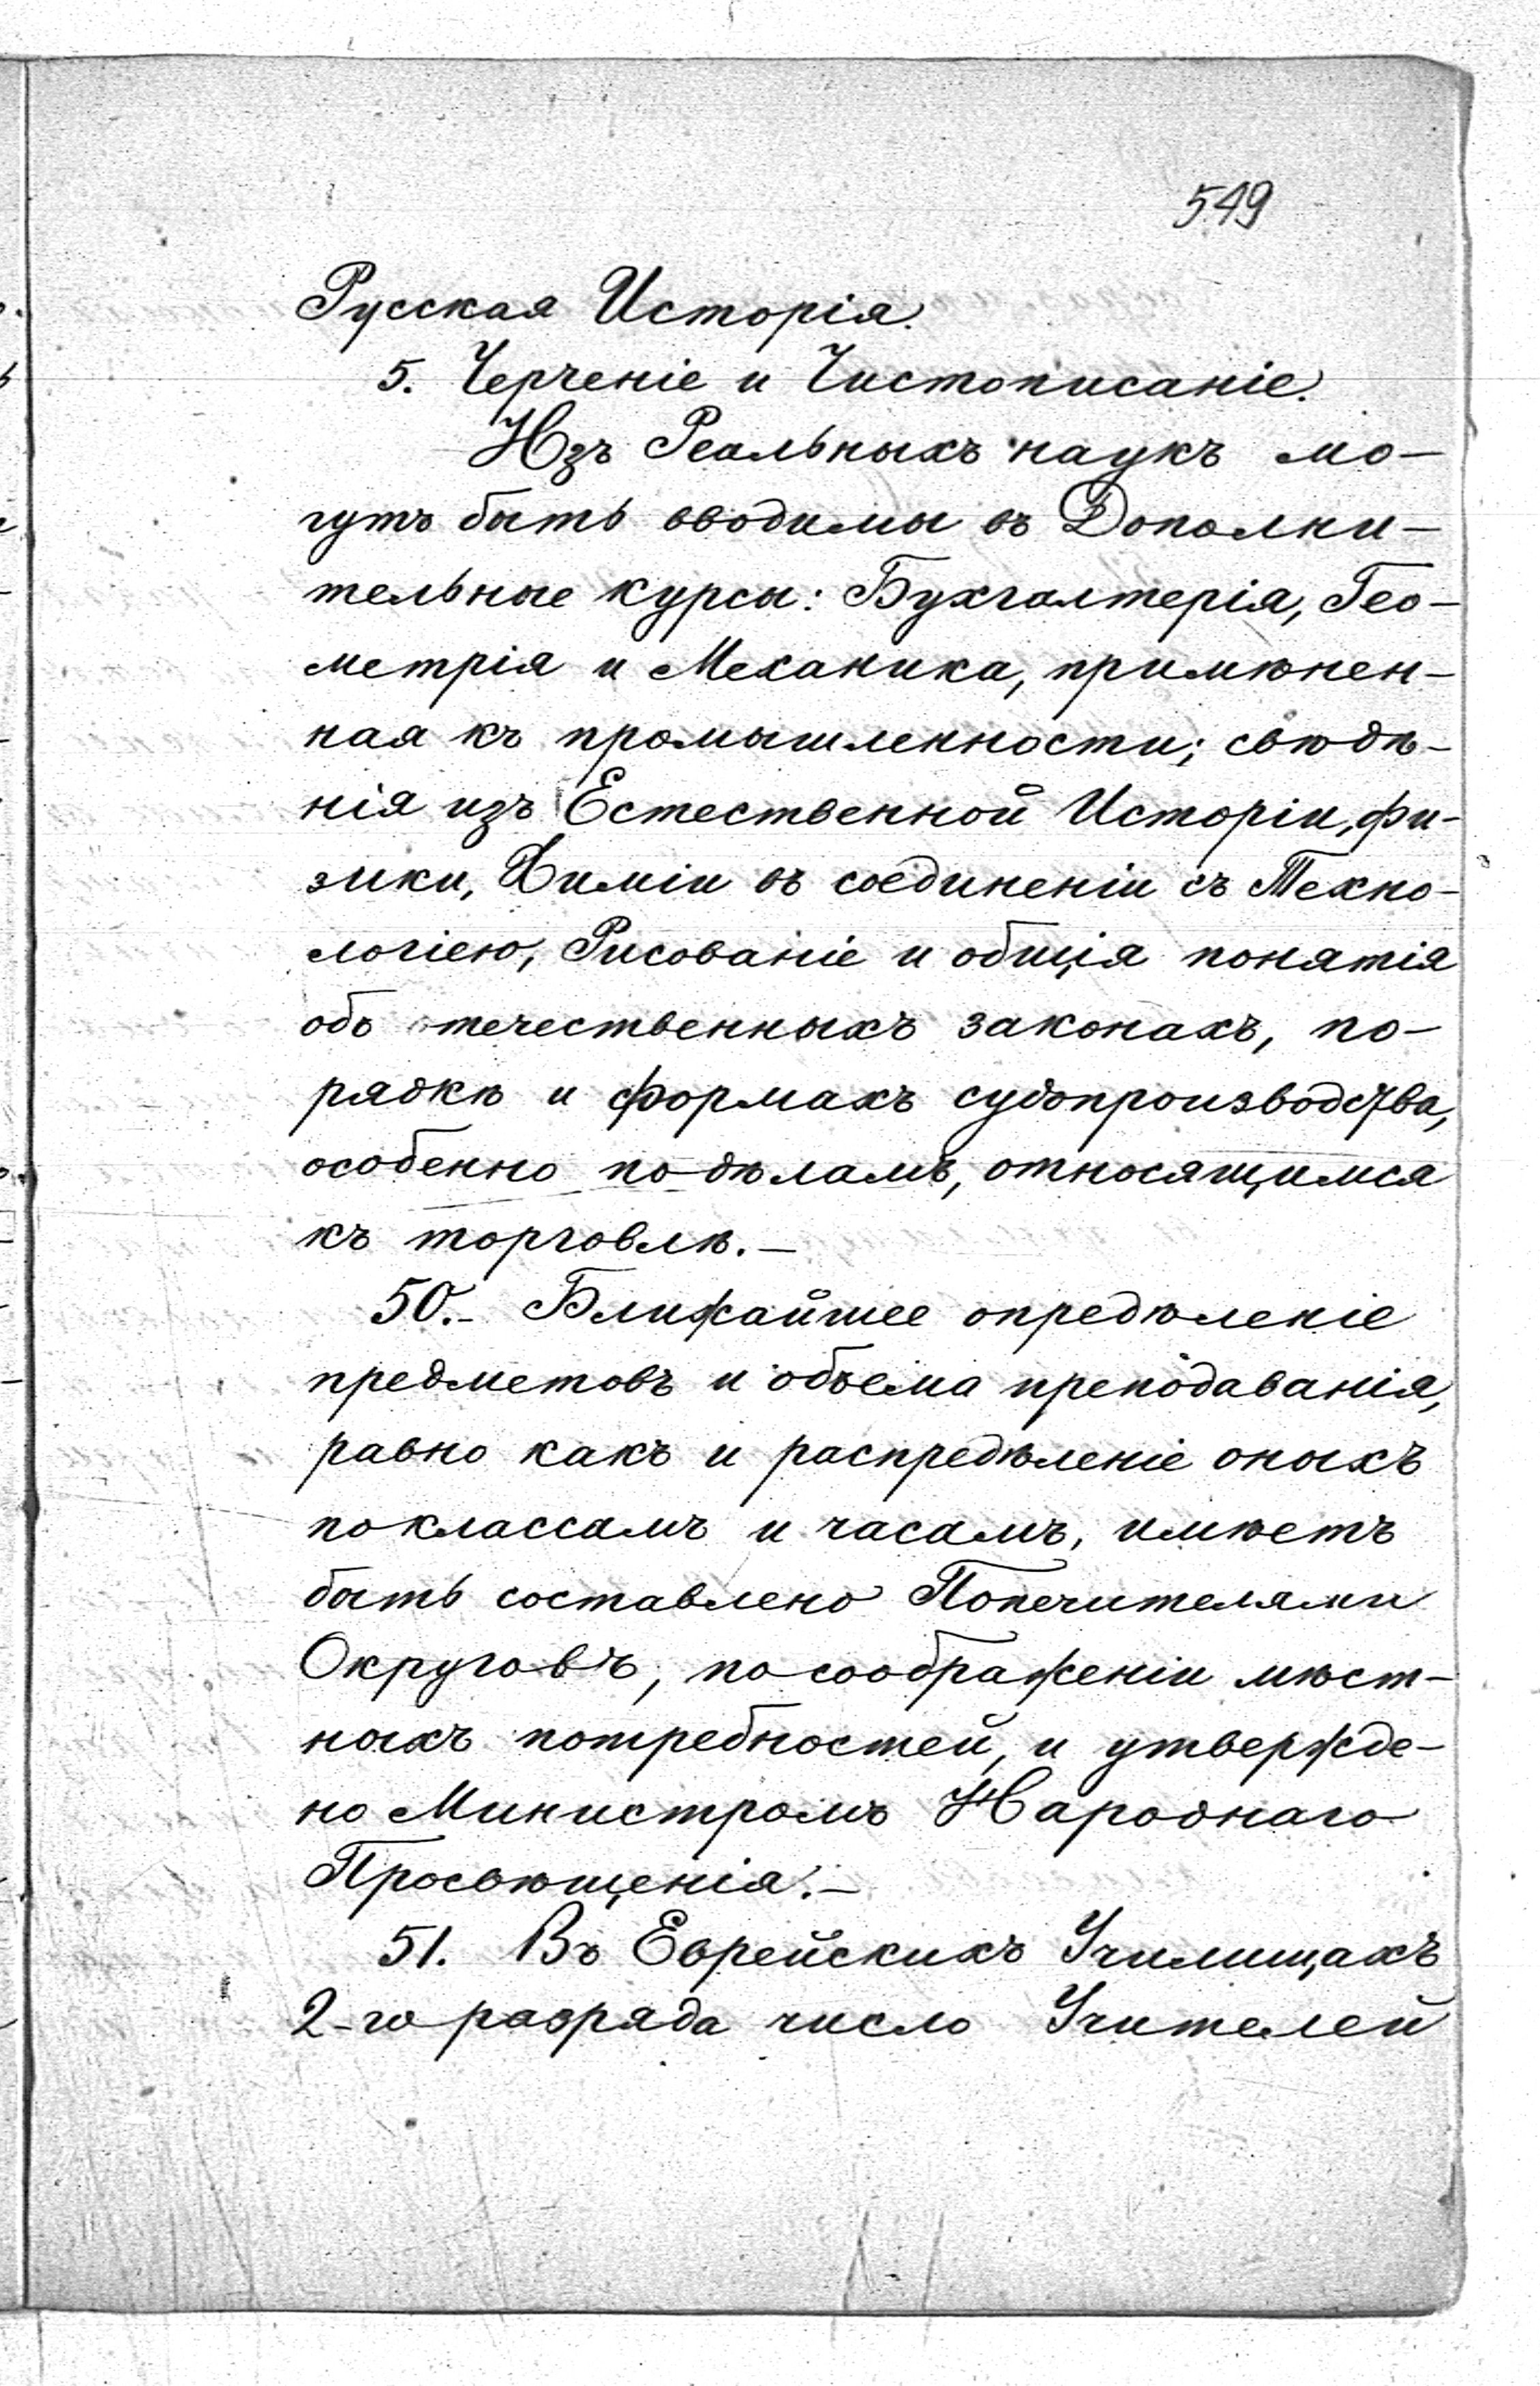 549
Русская Исторія.
5. Черченіе и Чистописаніе.
Изъ Реальныхъ наукъ мо-
гутъ быть вводимы въ Дополни-
тельные курсы: Бухгалтерія, Гео-
метрія и Механика, примѣнен-
ная къ промышленности; свѣдѣ-
нія изъ Естественной Исторіи, фи-
зики, Химіи въ соединеніи съ Техно-
логіею, Рисованіе и общія понятія
объ отечественныхъ законахъ, по-
рядкѣ и формахъ судопроизводства,
особенно по дѣламъ, относящимся
къ торговлѣ.—
50.- Ближайшее опредѣленіе
предметовъ и объема преподаванія,
равно какъ и распредѣленіе оныхъ
по классамъ и часамъ, имѣетъ
быть составлено Попечителями
Округовъ, по соображеніи мѣст-
ныхъ потребностей, и утвержде-
но Министромъ Народнаго
Просвѣщенія.—
51. Въ Еврейскихъ Училищахъ
2-го разряда число Учителей